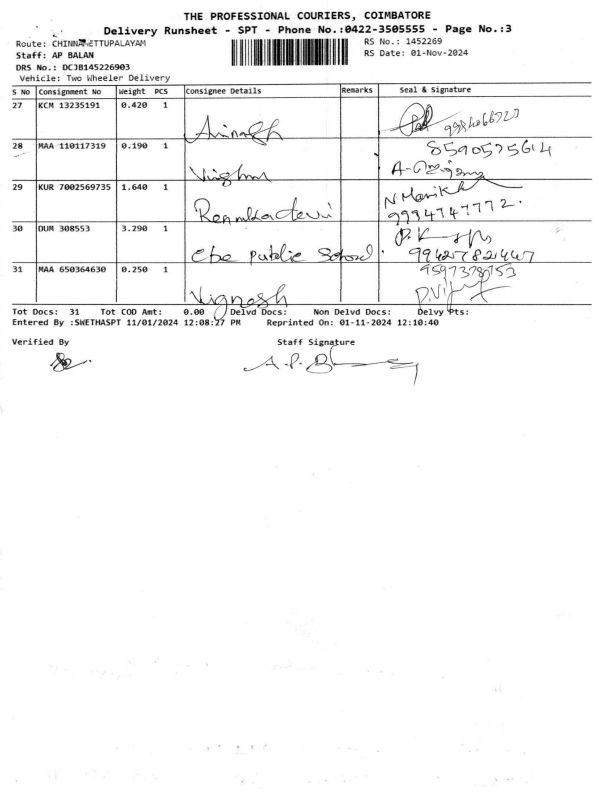 THE PROFESSIONAL COURIERS, COIMBATORE
Delivery Runsheet - SPT - Phone No.:0422-3505555 - Page No.:3
Route: CHINNAVETTUPALAYAM RS No.: 1452269
Staff: AP BALAN RS Date: 01-Nov-2024
DRS No.: DCJB145226903
Vehicle: Two Wheeler Delivery
S No Consignment No Weight PCS Consignee Details Remarks Seal & Signature
27 KCM 13235191 0.420 1
28 MAA 110117319 0.190 1 8590575614
29 KUR 7002569735 1.640 1 Renukadevi 9994747772.
30 DUM 308553 3.290 1 Public School. 9942782447
31 MAA 650364630 0.250 1 Vignesh
Tot Docs: 31 Tot COD Amt: 0.00 Delvd Docs: Non Delvd Docs: Delvy Pts:
Entered By :SWETHASPT 11/01/2024 12:08:27 PM Reprinted On: 01-11-2024 12:10:40
Verified By Staff Signature
A.P.